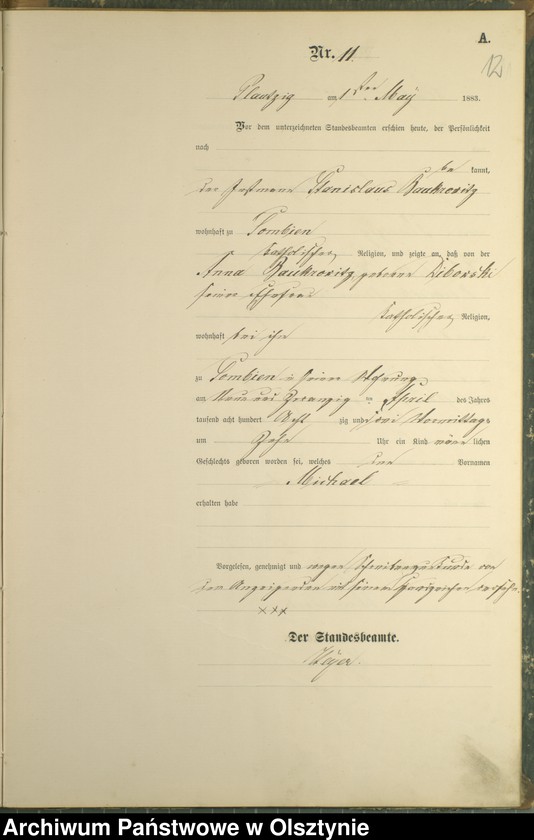 A.
12
Nr. 11
Plautzig am 1ten May 1883.
Vor dem unterzeichneten Standesbeamten erschien heute, der Persönlichkeit
nach
be kannt,
der Instmann Stanislaus
wohnhaft zu Dombien
katholischer Religion, und zeigte an, daß von der
Anna geborene
seine Ehefrau
katholischer Religion,
wohnhaft bei ihm
zu Dombien in seiner Wohnung
am Neun und Zwanzig ten April des Jahres
tausend acht hundert Acht zig und drei Vormittags
um Zehn Uhr ein Kind männ lichen
Geschlechts geboren worden sei, welches den Vornamen
Michael
erhalten habe
Vorgelesen, genehmigt und wegen Schreibensunkunde von
dem Anzeigenden mit seinem Handzeichen versehen
xxx
Der Standesbeamte.